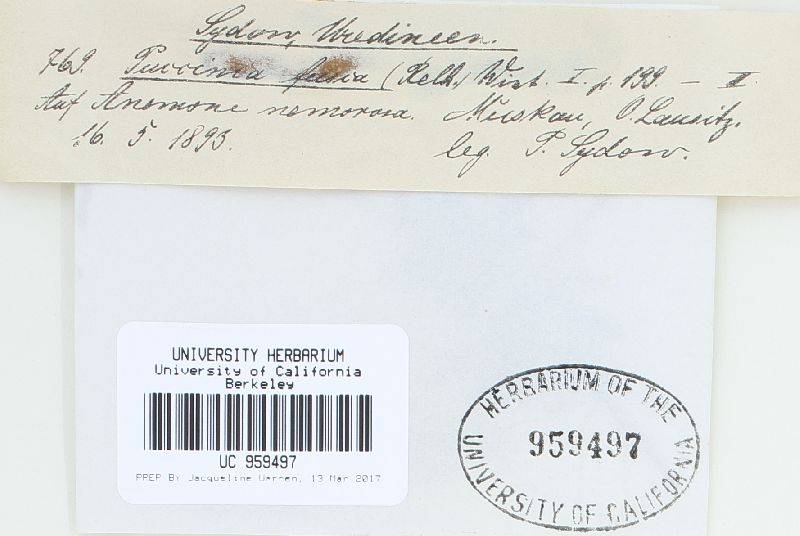 Sydow, Uredineen.
769. Puccinia fusca (Relh.) Wint. I. p. 199 — III.
Auf Anemone nemorosa. Muskau, O. Lausitz.
16. 5. 1893. leg. P. Sydow.
UNIVERSITY HERBARIUM
University of California
Berkeley
UC 959497
PREP BY Jacqueline Warren, 13 Mar 2017
HERBARIUM OF THE
959497
UNIVERSITY OF CALIFORNIA